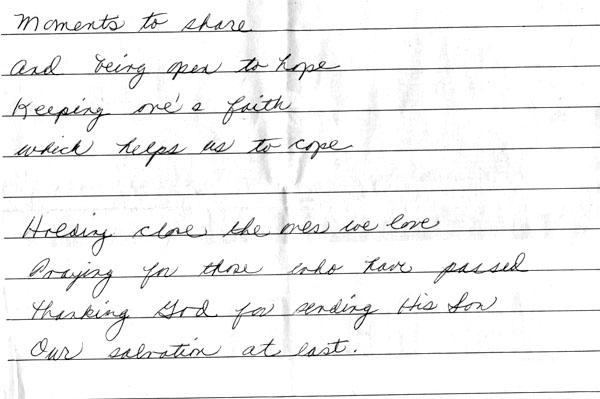 Moments to share
And being open to hope
Keeping one's faith
which helps us to cope
Holding close the ones we love
Praying for those who have passed
Thanking God for sending His Son
Our salvation at last.